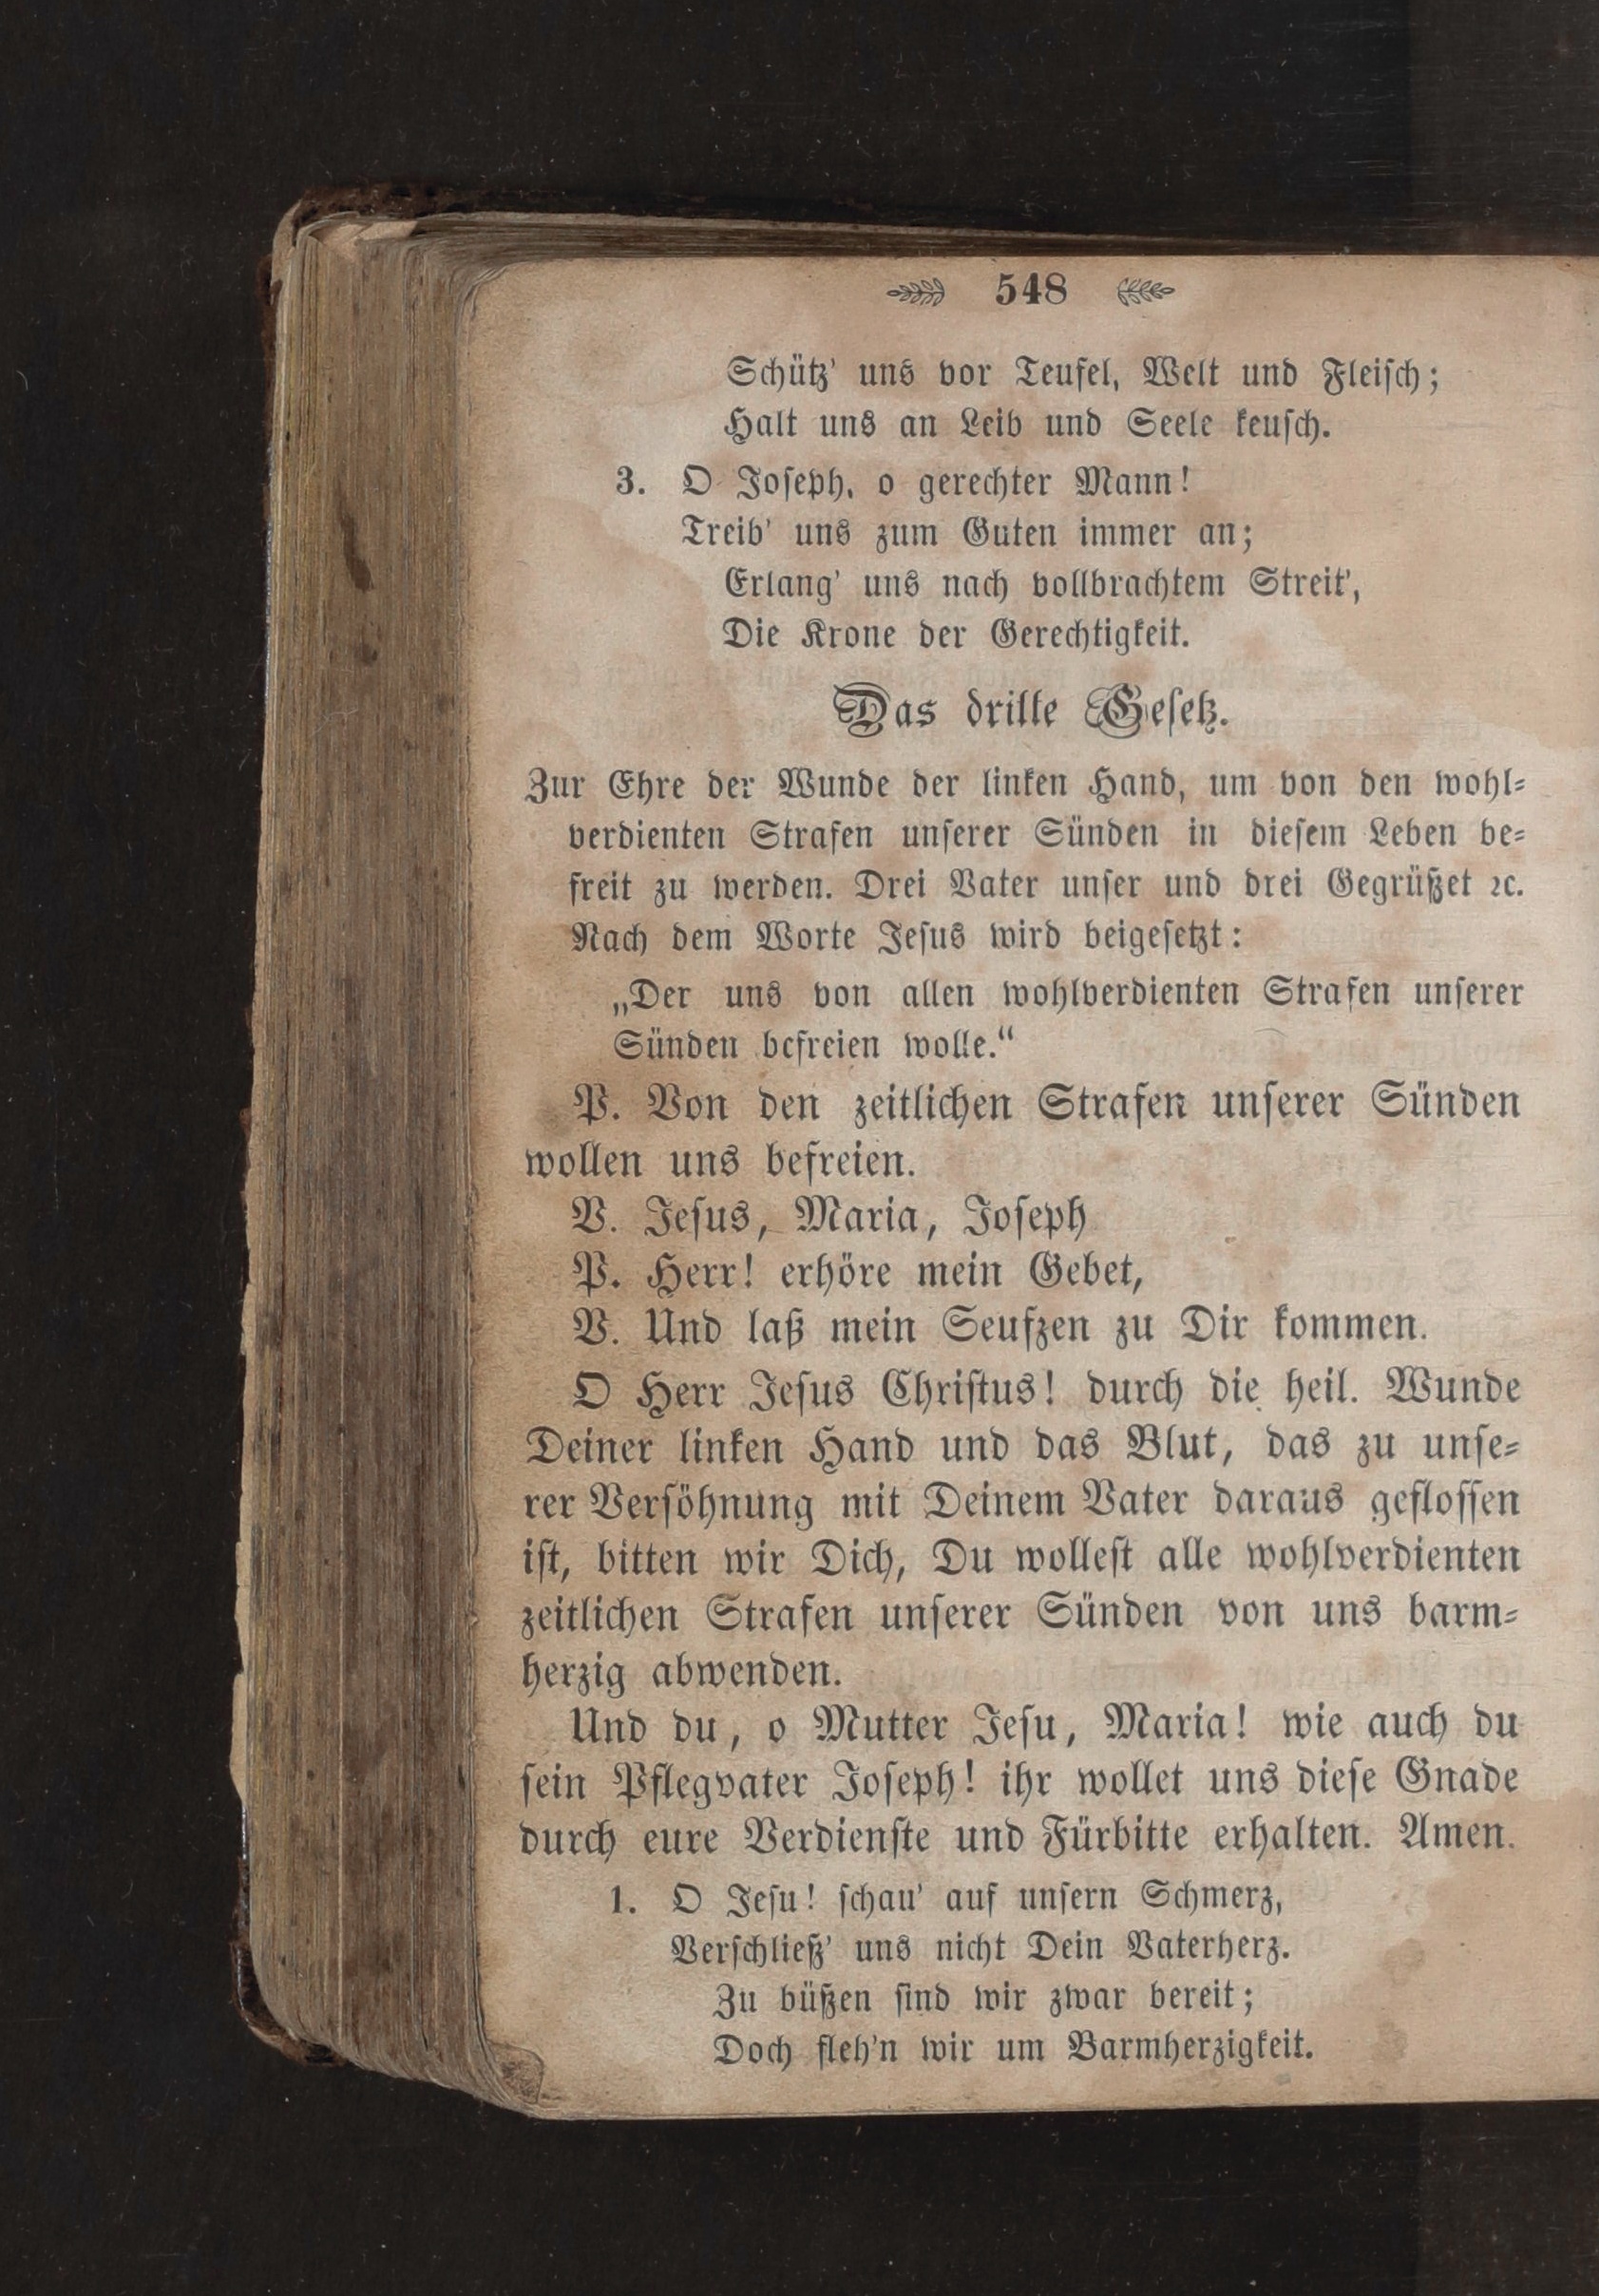 548
Schütz' uns vor Teufel, Welt und Fleisch;
Halt uns an Leib und Seele keusch.
3. O Joseph, o gerechter Mann!
Treib' uns zum Guten immer an;
Erlang' uns nach vollbrachtem Streit',
Die Krone der Gerechtigkeit.
Das dritte Gesetz.
Zur Ehre der Wunde der linken Hand, um von den wohl-
verdienten Strafen unserer Sünden in diesem Leben be-
freit zu werden. Drei Vater unser und drei Gegrüßet ꝛc.
Nach dem Worte Jesus wird beigesetzt:
„Der uns von allen wohlverdienten Strafen unserer
Sünden befreien wolle.“
P. Von den zeitlichen Strafen unserer Sünden
wollen uns befreien.
V. Jesus, Maria, Joseph
P. Herr! erhöre mein Gebet,
V. Und laß mein Seufzen zu Dir kommen.
O Herr Jesus Christus! durch die heil. Wunde
Deiner linken Hand und das Blut, das zu unse-
rer Versöhnung mit Deinem Vater daraus geflossen
ist, bitten wir Dich, Du wollest alle wohlverdienten
zeitlichen Strafen unserer Sünden von uns barm-
herzig abwenden.
Und du, o Mutter Jesu, Maria! wie auch du
sein Pflegvater Joseph! ihr wollet uns diese Gnade
durch eure Verdienste und Fürbitte erhalten. Amen.
1. O Jesu! schau' auf unsern Schmerz,
Verschließ' uns nicht Dein Vaterherz.
Zu büßen sind wir zwar bereit;
Doch fleh'n wir um Barmherzigkeit.